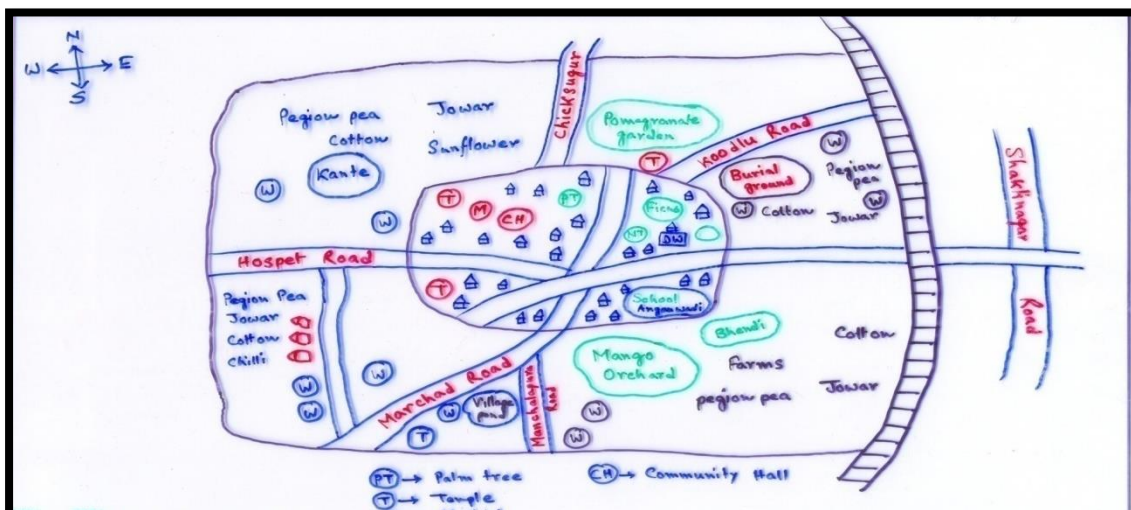 N
W E
S
Pegion pea
Cotton
Jowar
Sunflower
Kante
W
W
Chicksugur
Pomegranate
garden
T
Koodlu Road
Burial
ground
W
Pegion
pea
W
W
Cotton
Jowar
Shaktinagar
Road
T
M
CH
PT
Ficus
NT
DW
Hospet Road
T
School
Anganwadi
Pegion Pea
Jowar
Cotton
Chilli
W
W
W
Marchad Road
W
Village
pond
T
Manchalapura
Road
Mango
Orchard
Bhendi
Farms
pegion pea
Cotton
Jowar
W
W
PT → Palm tree
T → Temple
CH → Community Hall